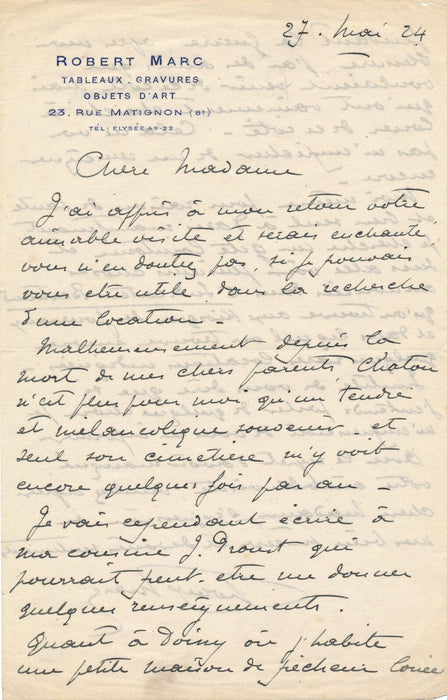 27. Mai 24
ROBERT MARC
TABLEAUX. GRAVURES
OBJETS D'ART
23, RUE MATIGNON (8e)
TÉL: ELYSÉE 49-22
Chère Madame
J'ai appris à mon retour votre
aimable visite et serais enchanté,
vous n'en doutez pas, si je pouvais
vous être utile dans la recherche
d'une location -
Malheureusement depuis la
mort de mes chers parents Chatou
n'est plus pour moi qu'un tendre
et mélancolique souvenir - et
seul son cimetière m'y voit
encore quelques fois par an -
Je vais cependant écrire à
ma cousine J. Proust qui
pourrait peut-être me donner
quelques renseignements.
Quant à où j'habite
une petite maison de pêcheur louée